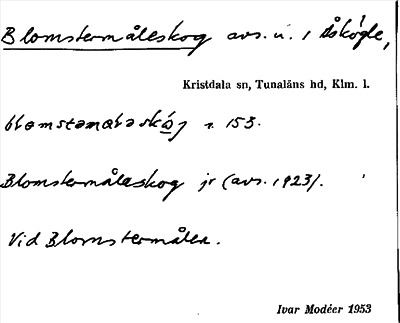 Blomstermåleskog avs. u. i Åskögle,
Kristdala sn, Tunaläns hd, Klm. l.
s. 153.
Blomstermåleskog jr (avs. 1923).
Vid Blomstermålen.
Ivar Modéer 1953